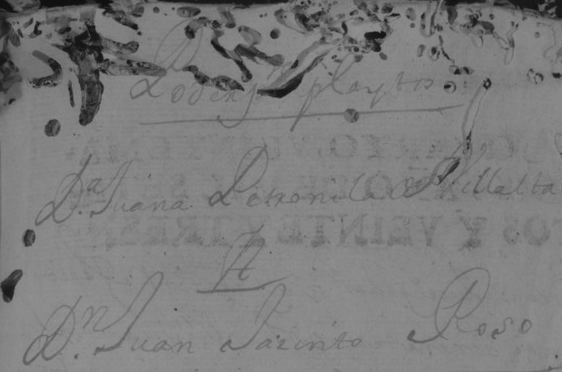 Poder pa playtos
Da. Juana Petronila Villalta
A
Dn. Juan Jazinto Roso